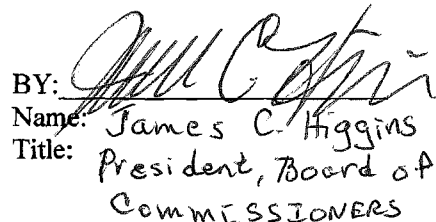 BY:
Name: James C. Higgins
Title: President, Board of
Commissioners